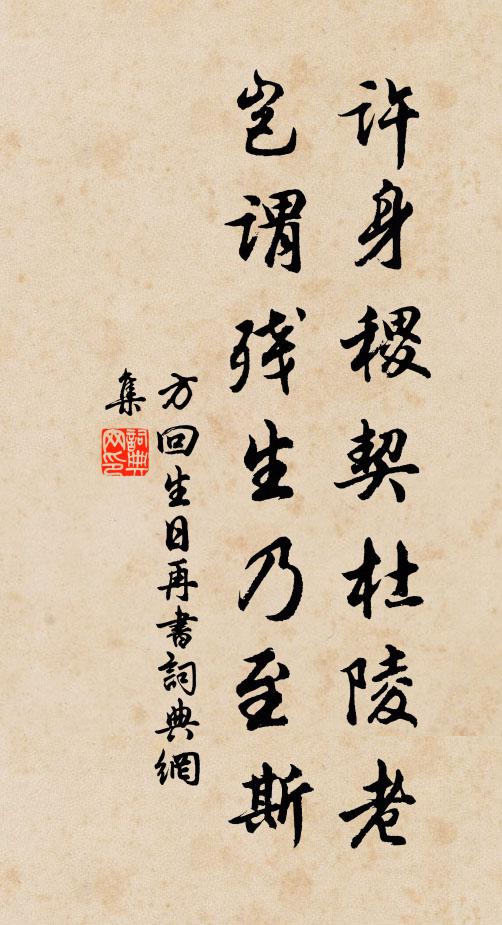 许身稷契杜陵老
岂谓残生乃至斯
方回生日再書詞典網
集
詞典
网印